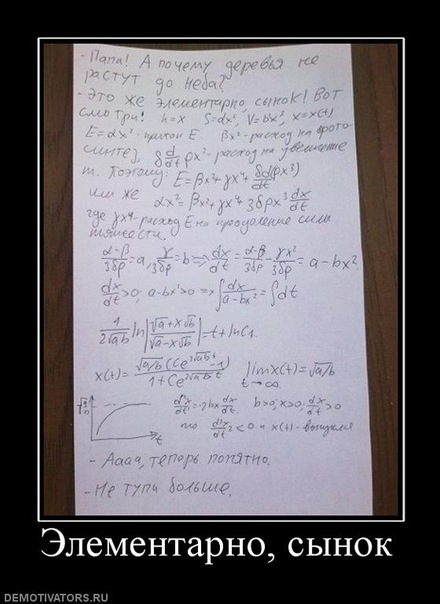 - Папа! А почему деревья не
растут до неба?
- Это же элементарно, сынок! Вот
смотри! h=x S=αx², V=bx³, x=x(t)
E=αx² - приток E. βx² - расход на фото-
синтез, δ d/dt ρx³ - расход на увеличение
m. Поэтому: E=βx²+γx⁴+ δd(ρx³)/dt
или же αx²=βx²+γx⁴+3δρx² dx/dt
где γx⁴ - расход E на преодоление силы
тяжести.
(α-β)/3δρ=a, γ/3δρ=b => dx/dt=(α-β)/3δρ - γx²/3δρ = a-bx²
dx/dt>0; a-bx²>0 => ∫dx/(a-bx²)=∫dt
1/(2√ab) ln|(√a+x√b)/(√a-x√b)|=t+lnC₁
x(t)=√a/b (Ce^(2√ab t)-1)/(1+Ce^(2√ab t)) lim x(t)=√a/b
t→∞
√a/b d²x/dt²=-2bx dx/dt. b>0, x>0, dx/dt>0
то d²x/dt²<0 и x(t) - выпуклая
t
- Аааа, теперь понятно.
- Не тупи больше.
Элементарно, сынок
DEMOTIVATORS.RU